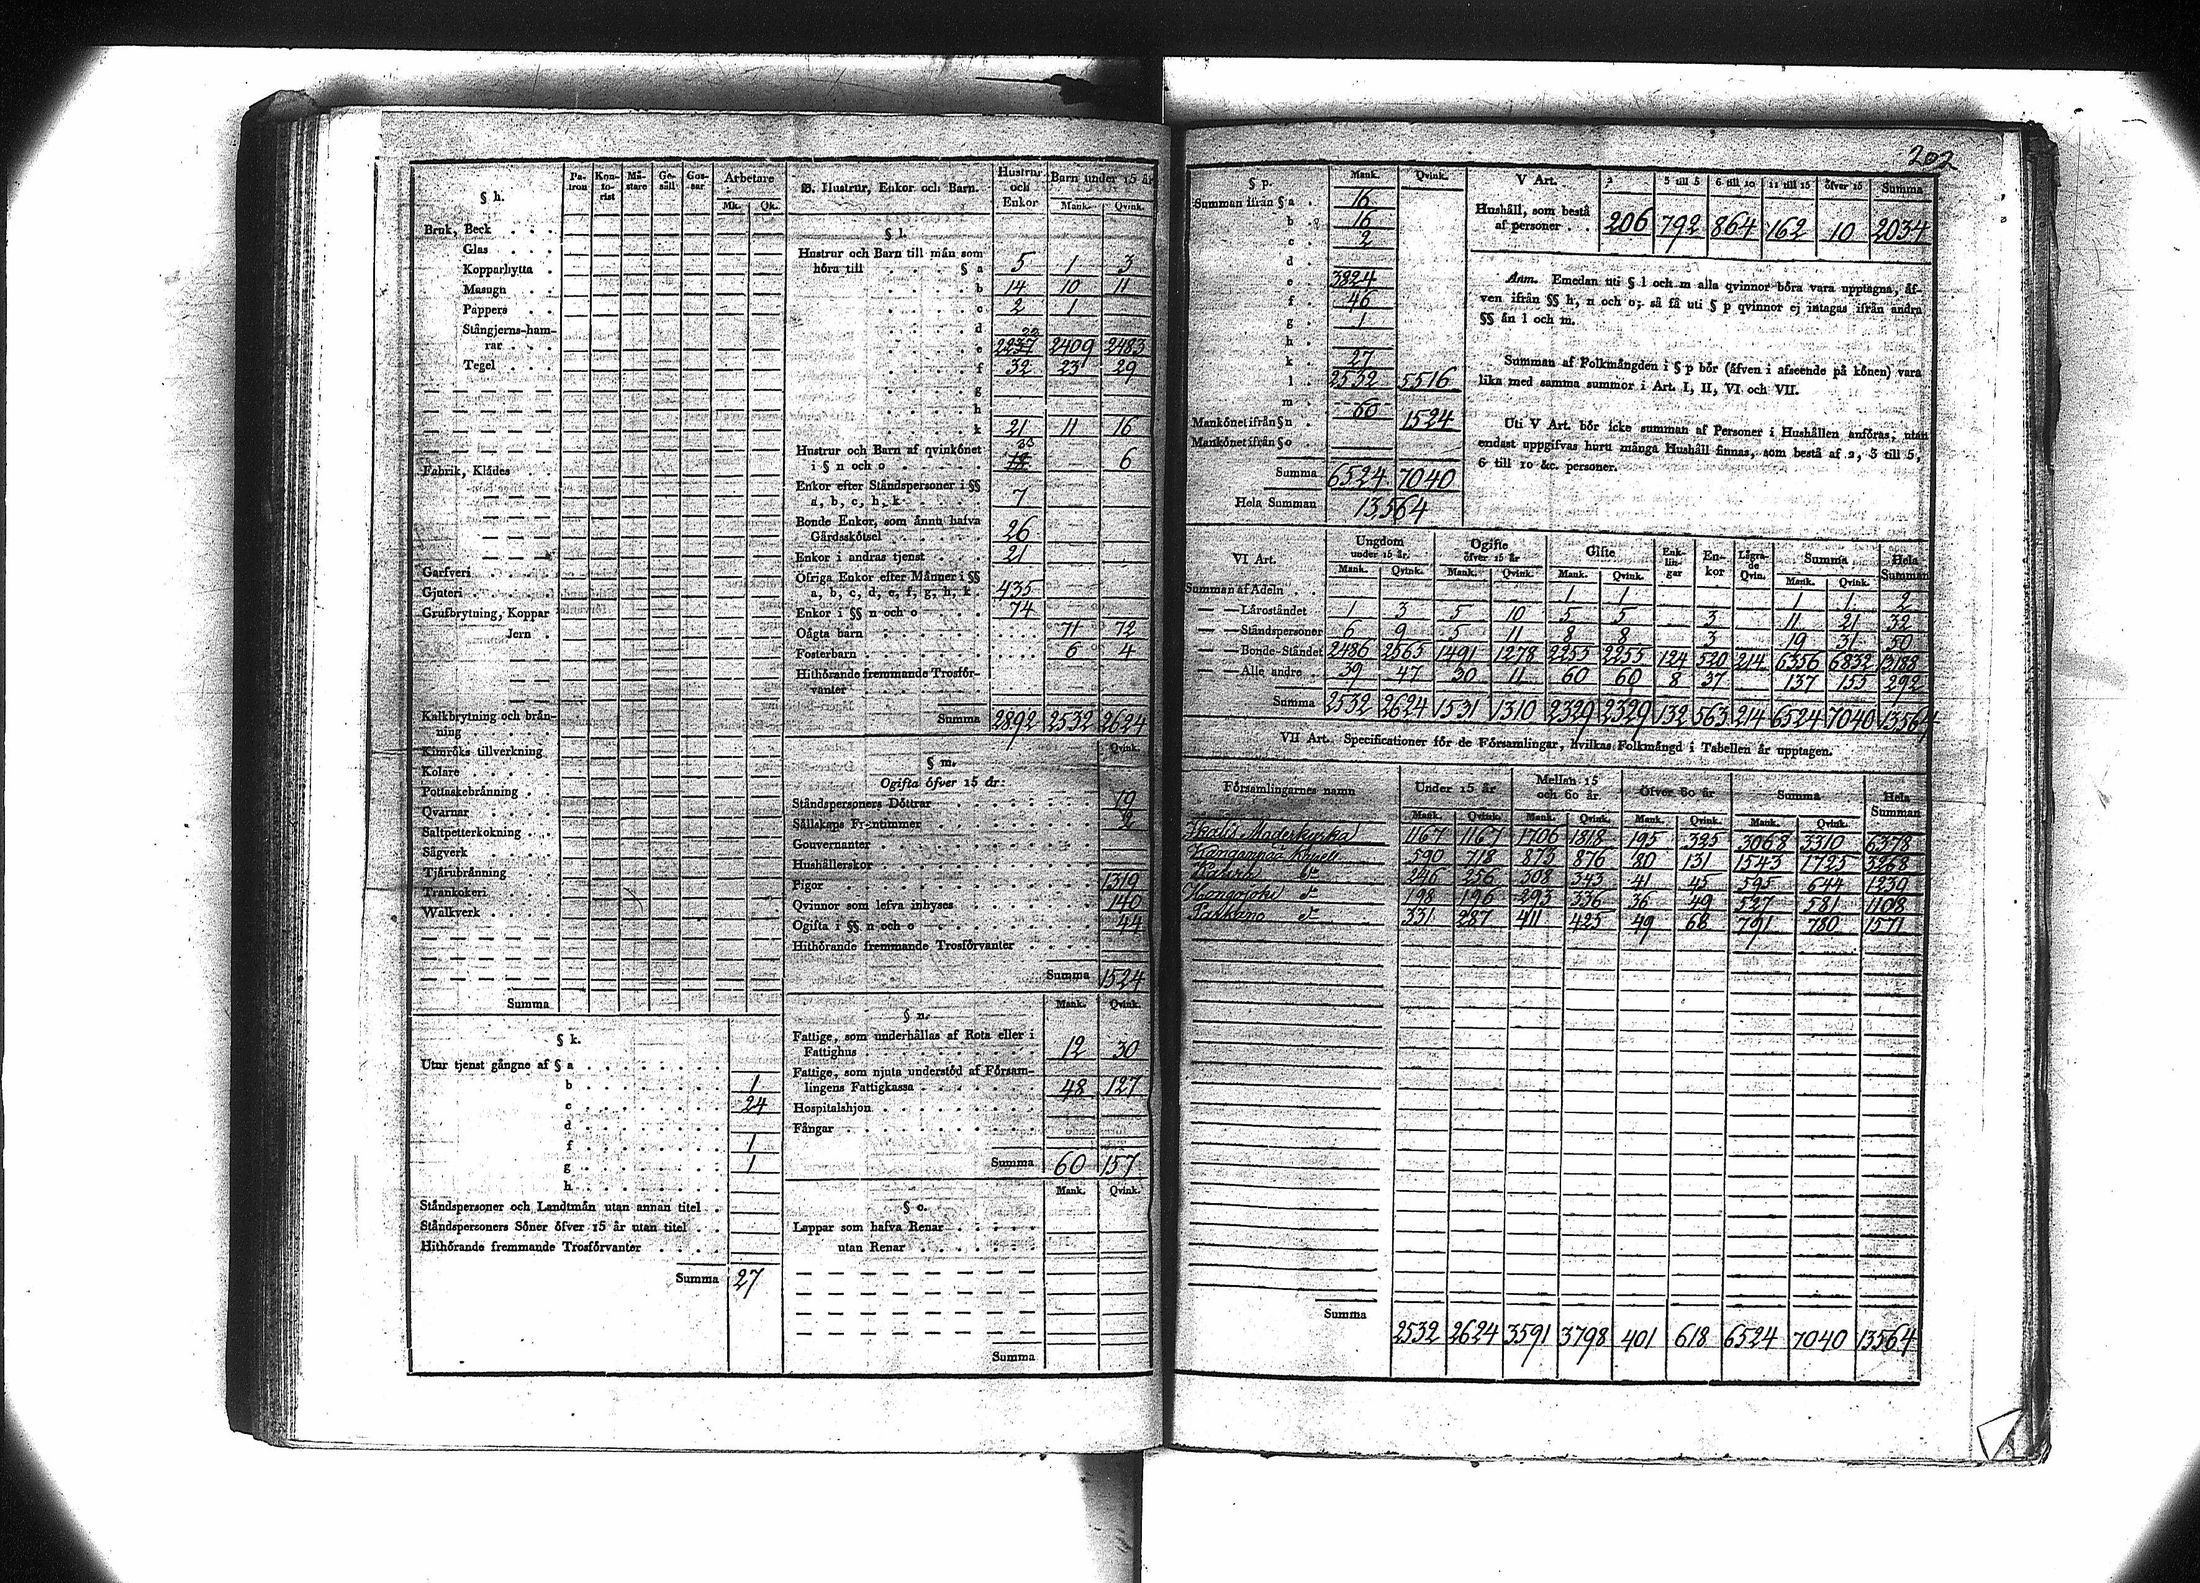 § h. Pa-tron Kon-to-rist Mä-stare Ge-säll Gos-sar Arbetare
Mk. Qk.
Bruk, Beck . . .
Glas . . .
Kopparhytta .
Masugn . .
Pappers . .
Stångjerns-ham-
rar . . .
Tegel . . .
Fabrik, Klädes . .
Garfveri . . . .
Gjuteri . . . .
Grufbrytning, Koppar
Jern .
Kalkbrytning och brän-
ning . . . . .
Kimröks tillverkning
Kolare . . . . .
Pottaskebränning . .
Qvarnar . . . .
Saltpetterkokning . .
Sågverk . . . .
Tjärubränning . . .
Trankokeri . . . .
Walkverk . . . .
Summa
§ k.
Utur tjenst gångne af § a
b 1
c 24
d
f 1
g 1
h
Ståndspersoner och Landtmän utan annan titel .
Ståndspersoners Söner öfver 15 år utan titel . .
Hithörande fremmande Trosförvanter . . . .
Summa 27
B. Hustrur, Enkor och Barn. Hustrur och Enkor Barn under 15 år
Mank. Qvink.
§ l.
Hustrur och Barn till män som
höra till . . . . § a 5 1 3
b 14 10 11
c 2 1
d
e 2409 2483
f 32 23 29
g
h
k 21 11 16
Hustrur och Barn af qvinkönet
i § n och o . . . . — 6
Enkor efter Ståndspersoner i §§
a, b, c, h, k . . . . 7
Bonde Enkor, som ännu hafva
Gårdsskötsel . . . . 26
Enkor i andras tjenst . . . 21
Öfriga Enkor efter Männer i §§
a, b, c, d, e, f, g, h, k . 435
Enkor i §§ n och o . . . 74
Oägta barn . . . . 71 72
Fosterbarn . . . . 6 4
Hithörande fremmande Trosför-
vanter . . . .
Summa 2892 2532 2624
Qvink.
§ m.
Ogifta öfver 15 år:
Ståndspersoners Döttrar . . . . 19
Sällskaps Fruntimmer . . . . 2
Gouvernanter . . . .
Hushållerskor . . . .
Pigor . . . . 1319
Qvinnor som lefva inhyses . . . . 140
Ogifta i §§ n och o . . . . 44
Hithörande fremmande Trosförvanter . . . .
Summa 1524
Mank. Qvink.
§ n.
Fattige, som underhållas af Rota eller i
Fattighus . . . . 12 30
Fattige, som njuta understöd af Försam-
lingens Fattigkassa . . . . 48 127
Hospitalshjon . . . .
Fångar . . . .
Summa 60 157
Mank. Qvink.
§ o.
Lappar som hafva Renar . . . .
utan Renar . . . .
Summa
202
§ p. Mank. Qvink.
Summan ifrån § a . 16
b . 16
c . 2
d .
e . 3824
f . 46
g . 1
h .
k . 27
l . 2532 5516
m . 1524
Mankönet ifrån § n . 60
Mankönet ifrån § o .
Summa 6524 7040
Hela Summan 13564
V Art. 2 3 till 5 6 till 10 11 till 15 öfver 15 Summa
Hushåll, som bestå
af personer . . 206 792 864 162 10 2034
Anm. Emedan uti § l och m alla qvinnor böra vara upptagna, äf-
ven ifrån §§ h, n och o; så få uti § p qvinnor ej intagas ifrån andra
§§ än l och m.
Summan af Folkmängden i § p bör (äfven i afseende på könen) vara
lika med samma summor i Art. I, II, VI och VII.
Uti V Art. bör icke summan af Personer i Hushållen anföras, utan
endast uppgifvas huru många Hushåll finnas, som bestå af 2, 3 till 5,
6 till 10 &c. personer.
VI Art. Ungdom under 15 år. Ogifte öfver 15 år Gifte Enk-lin-gar En-kor Lägra-de Qvin. Summa Hela Summan
Mank. Qvink. Mank. Qvink. Mank. Qvink. Mank. Qvink.
Summan af Adeln . . 1 1 1 1 2
— — Läroståndet 1 3 5 10 5 5 3 11 21 32
— — Ståndspersoner 6 9 5 11 8 8 3 19 31 50
— — Bonde-Ståndet 2486 2565 1491 1278 2255 2255 124 520 214 6356 6832 13188
— — Alle andre . 39 47 30 11 60 60 8 37 137 155 292
Summa 2532 2624 1531 1310 2329 2329 132 563 214 6524 7040 13564
VII Art. Specificationer för de Församlingar, hvilkas Folkmängd i Tabellen är upptagen.
Församlingarnes namn Under 15 år Mellan 15 och 60 år Öfver 60 år Summa Hela Summan
Mank. Qvink. Mank. Qvink. Mank. Qvink. Mank. Qvink.
Ikalis Moderkyrka 1167 1167 1706 1818 195 325 3068 3310 6378
Kankanpää Kapell 590 718 873 876 80 131 1543 1725 3268
246 256 308 343 41 45 595 644 1239
198 196 293 336 36 49 527 581 1108
Parkano d:o 331 287 411 425 49 68 791 780 1571
Summa
2532 2624 3591 3798 401 618 6524 7040 13564